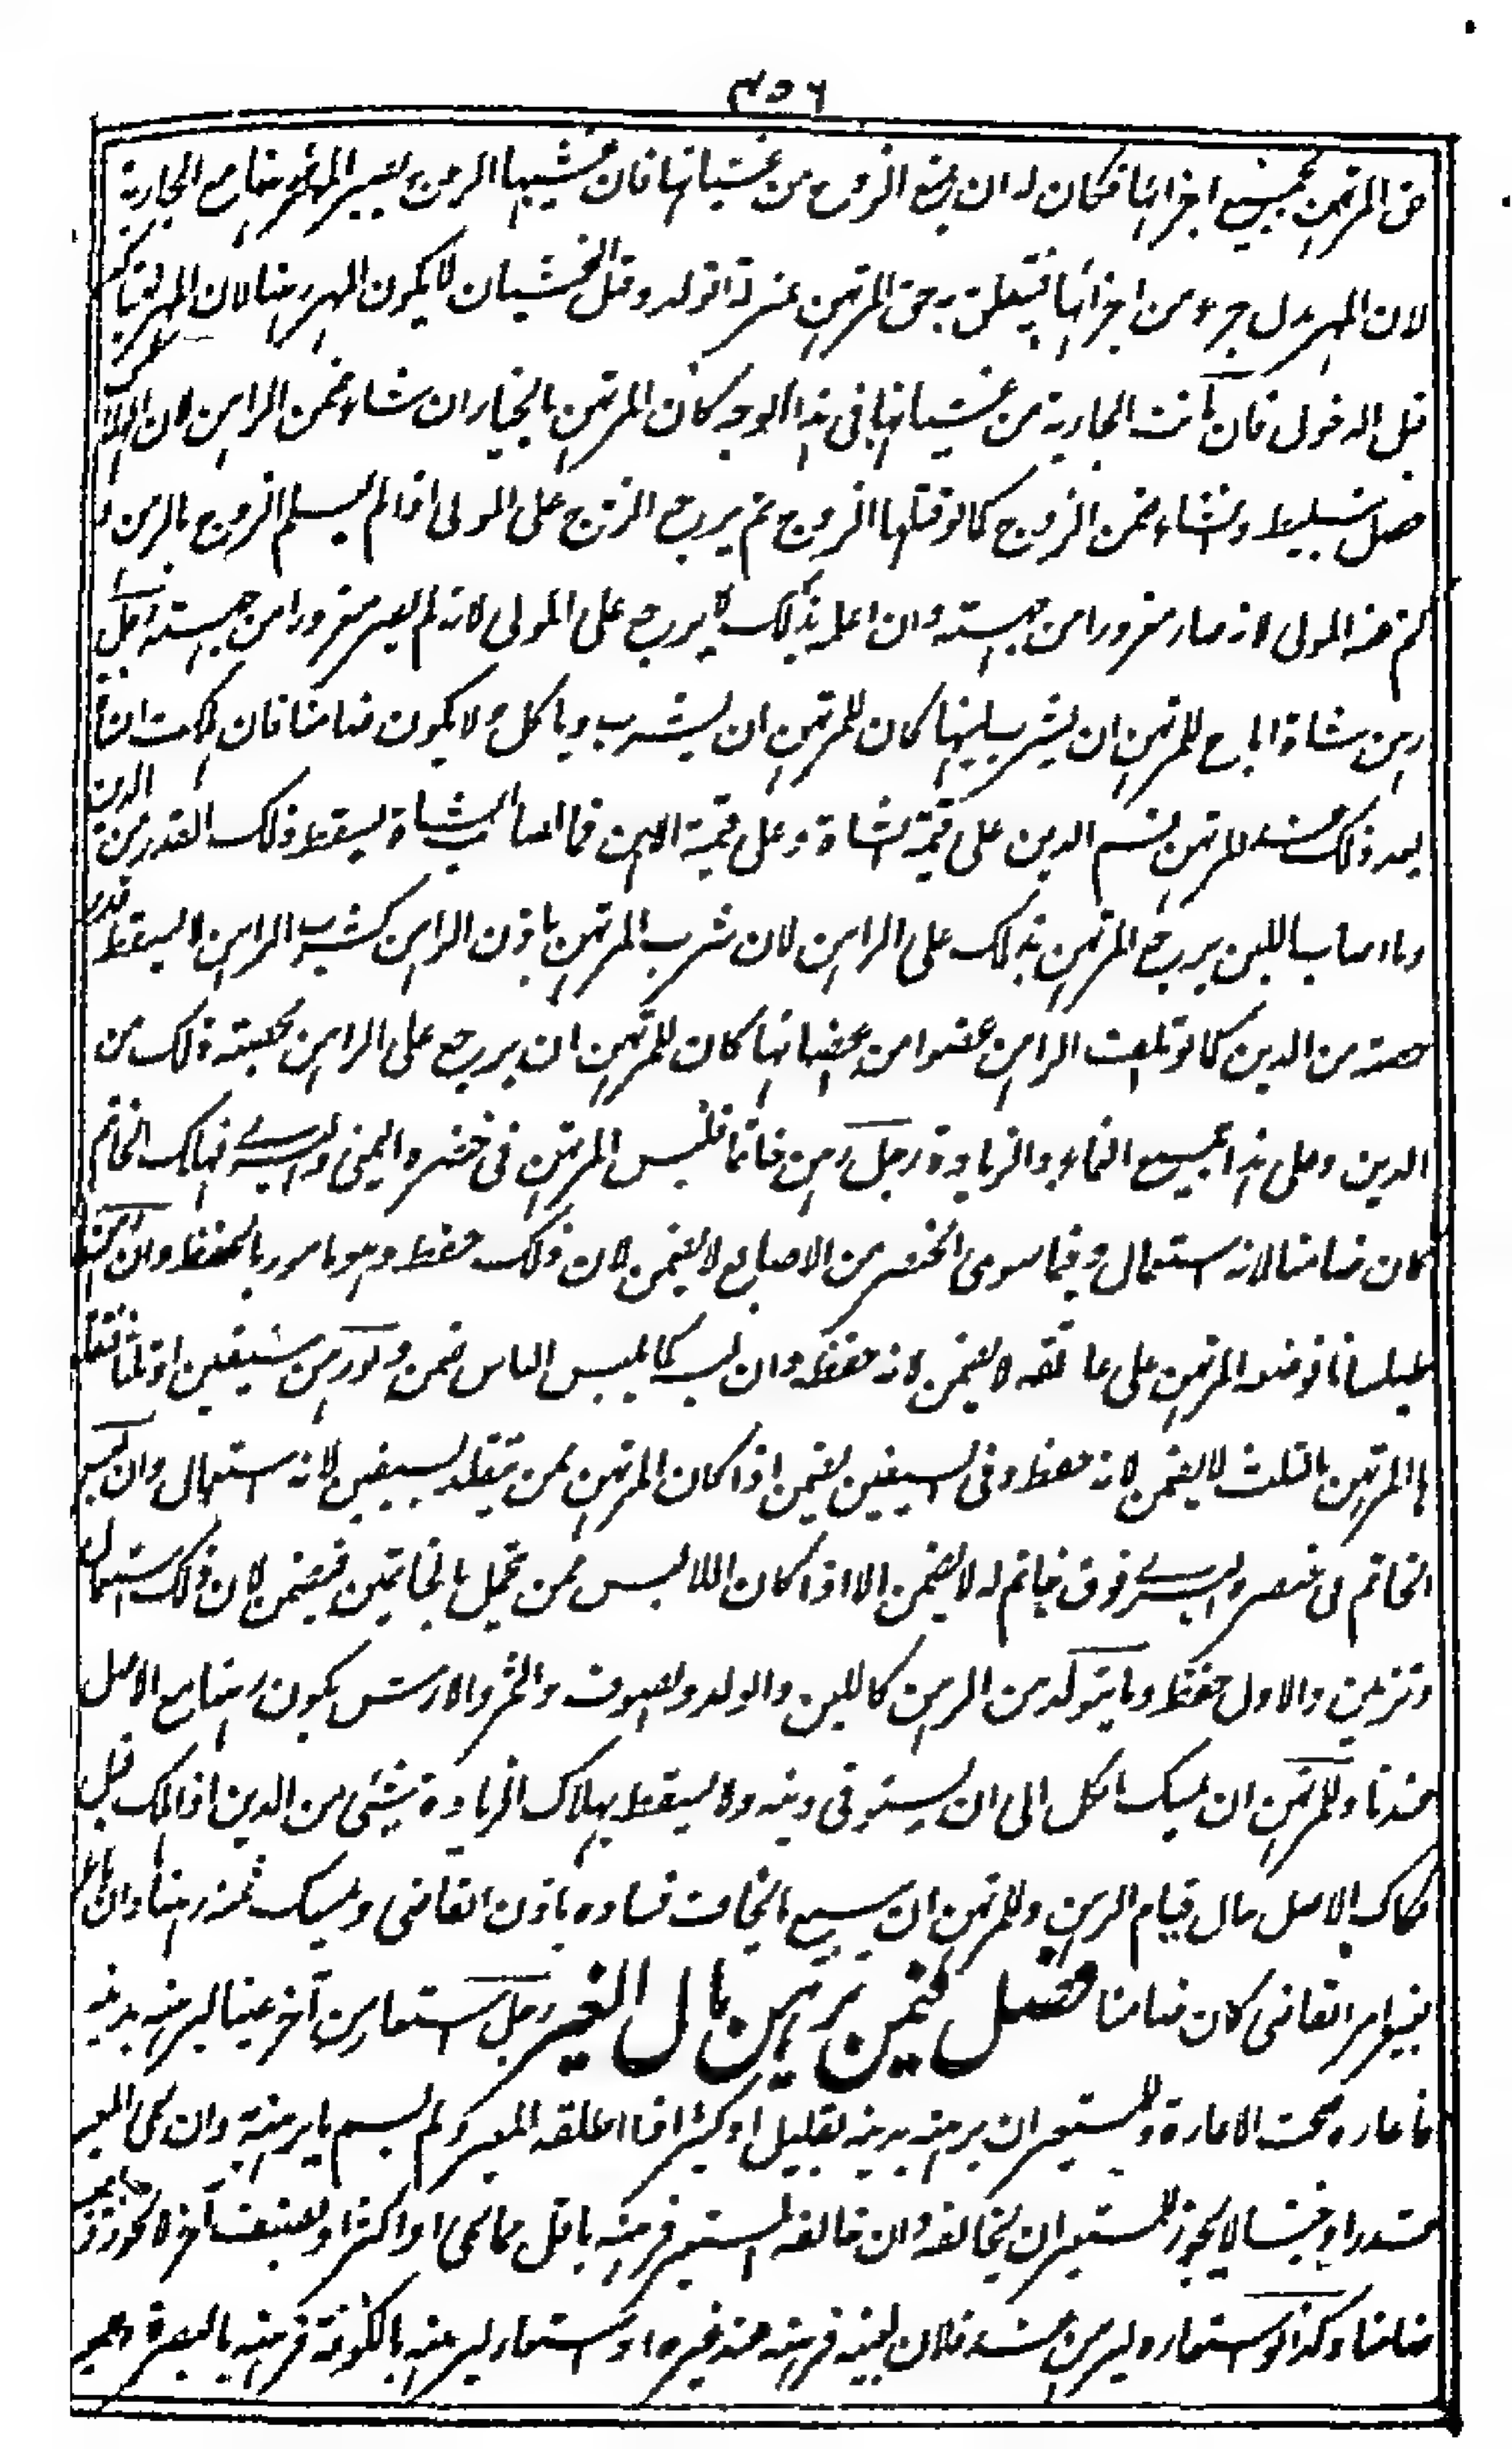 ٤٥٦
حق المرتهن بجميع اجزائها فكان له ان يمنع الزوج من غشيانها فان غشيها الزوج يصير المهر رهنا مع الجارية
لان المهر بدل جزء من اجزائها فيتعلق به حق المرتهن بمنزلة الولد وقبل الغشيان لا يكون المهر رهنا لان المهر لم يتأكد
قبل الدخول فان ماتت الجارية من غشيانها فى هذا الوجه كان المرتهن بالخيار ان شاء ضمن الراهن لان الهلاك
حصل بتسليط وان شاء ضمن الزوج كما لو قتلها الزوج ثم يرجع الزوج على المولى اذا لم يعلم الزوج بالرهن و
كتم عنه المولى لانه صار مغرورا من جهته وان اعلمه بذلك لا يرجع على المولى لانه لم يصر مغرورا من جهته رجل
رهن شاة واباح للمرتهن ان يشرب لبنها كان للمرتهن ان يشرب وياكل ولا يكون ضامنا فان هلكت الشاة
بعد ذلك عند المرتهن قسم الدين على قيمة الشاة وعلى قيمة اللبن فما اصاب الشاة يسقط ذلك القدر من الدين
وما اصاب اللبن يرجع المرتهن بذلك على الراهن لان شرب المرتهن باذن الراهن كشرب الراهن ولا يسقط قدر
حصته من الدين كما لو تلفت الراهن عضوا من اعضائها كان للمرتهن ان يرجع على الراهن بحصته ذلك من
الدين وعلى هذا جميع النماء والزيادة رجل رهن خاتما فلبس المرتهن فى خنصره اليمنى او اليسرى فهلك الخاتم
كان ضامنا لانه استعمال وفيما سوى الخنصر من الاصابع لا يضمن لان ذلك حفظ وهو مامور بالحفظ وان رهن
طيلسانا فوضعه المرتهن على عاتقه لا يضمن لانه حفظ وان لبسه كما يلبس الناس ضمن ولو رهن سيفين او ثلثا فتقلد
بها المرتهن بالثلث لا يضمن لانه حفظ وفى السيفين يضمن اذا كان المرتهن ممن يتقلد بسيفين لانه استعمال وان لبس
الخاتم فى خنصره اليسرى فوق خاتم له لا يضمن الا اذا كان اللابس ممن يتجمل بالخاتمين فيضمن لان ذلك استعمال
وتزين والاول حفظ وما يتولد من الرهن كاللبن والولد والصوف والثمر والارش يكون رهنا مع الاصل
عندنا وللمرتهن ان يمسك الكل الى ان يستوفى دينه ولا يسقط بهلاك الزيادة شئ من الدين اذا هلك قبل
فكاك الاصل حال قيام الرهن وللمرتهن ان يبيع ما يخاف فساده باذن القاضى ويمسك ثمنه رهنا وان باع
بغير امر القاضى كان ضامنا فصل فيمن يرهن مال الغير رجل استعار من آخر عينا ليرهنه بدينه
فاعاره صحت الاعارة وللمستعير ان يرهنه بدينه بقليل او كثير اذا اطلقه المعير ولم يسم ما يرهنه به وان سمى المعير
قدرا او جنسا لا يجوز للمستعير ان يخالفه وان خالفه المستعير فرهنه باقل مما سمى او اكثر او بصنف آخر لا يجوز
ضامنا وكذا لو استعاره ليرهن عند فلان بعينه فرهنه عند غيره او استعار ليرهنه بالكوفة فرهنه بالبصرة